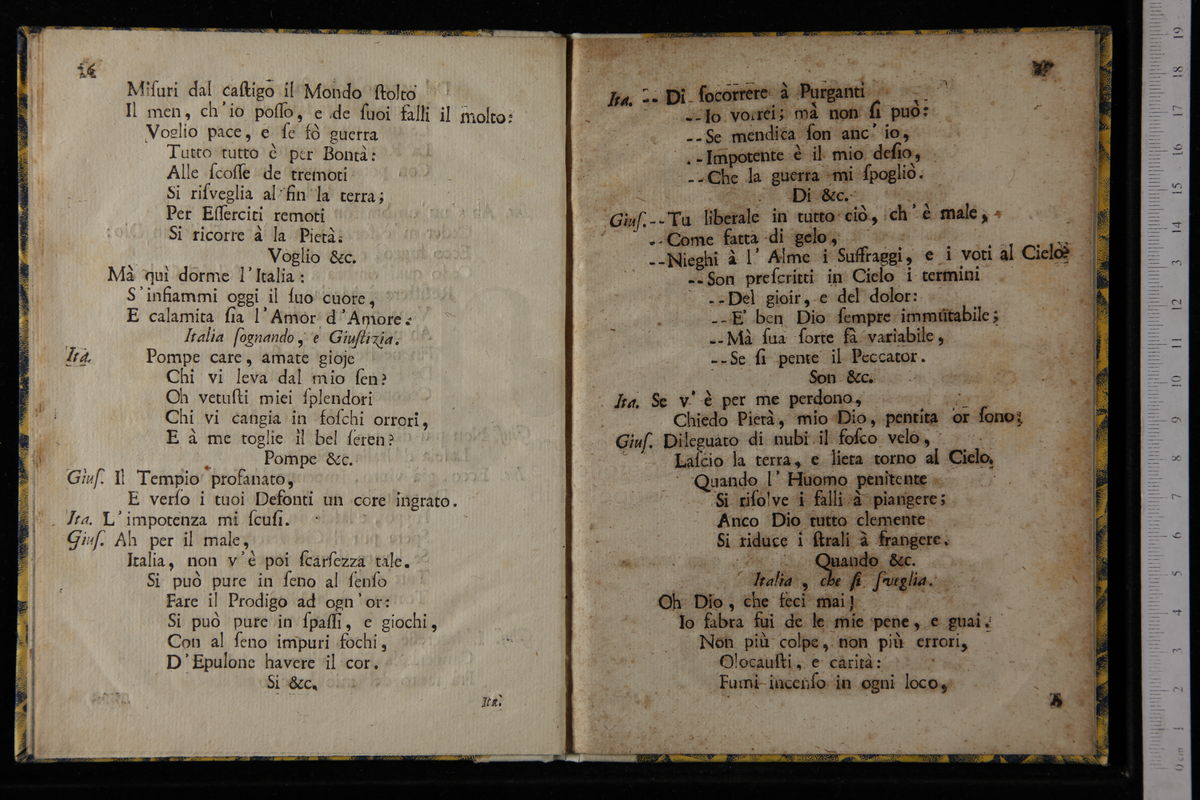 16
Miſuri dal caſtigo il Mondo ſtolto
Il men, ch'io poſſo, e de ſuoi falli il molto:
Voglio pace, e ſe fò guerra
Tutto tutto è per Bontà:
Alle ſcoſſe de tremoti
Si riſveglia al fin la terra;
Per Eſſerciti remoti
Si ricorre à la Pietà.
Voglio &c.
Mà quì dorme l'Italia:
S'infiammi oggi il ſuo cuore,
E calamita ſia l'Amor d'Amore.
Italia ſognando, e Giuſtizia.
Ita. Pompe care, amate gioje
Chi vi leva dal mio ſen?
Oh vetuſti miei ſplendori
Chi vi cangia in foſchi orrori,
E à me toglie il bel ſeren?
Pompe &c.
Giuſ. Il Tempio profanato,
E verſo i tuoi Defonti un core ingrato.
Ita. L'impotenza mi ſcuſi.
Giuſ. Ah per il male,
Italia, non v'è poi ſcarſezza tale.
Si può pure in ſeno al ſenſo
Fare il Prodigo ad ogn'or:
Si può pure in ſpaſſi, e giochi,
Con al ſeno impuri fochi,
D'Epulone havere il cor.
Si &c.
Ita.
Ita. -- Di ſocorrere à Purganti
-- Io vorrei; mà non ſi può:
-- Se mendica ſon anc' io,
-- Impotente è il mio deſio,
-- Che la guerra mi ſpogliò.
Di &c.
Giuſ. -- Tu liberale in tutto ciò, ch' è male,
-- Come fatta di gelo,
-- Nieghi à l' Alme i Suffraggi, e i voti al Cielo?
-- Son preſcritti in Cielo i termini
-- Del gioir, e del dolor:
-- E' ben Dio ſempre immutabile;
-- Mà ſua ſorte fà variabile,
-- Se ſi pente il Peccator.
Son &c.
Ita. Se v' è per me perdono,
Chiedo Pietà, mio Dio, pentita or ſono;
Giuſ. Dileguato di nubi il foſco velo,
Laſcio la terra, e lieta torno al Cielo.
Quando l' Huomo penitente
Si riſolve i falli à piangere;
Anco Dio tutto clemente
Si riduce i ſtrali à frangere.
Quando &c.
Italia, che ſi ſveglia.
Oh Dio, che feci mai!
Io fabra fui de le mie pene, e guai.
Non più colpe, non più errori,
Olocauſti, e carità:
Fumi incenſo in ogni loco,